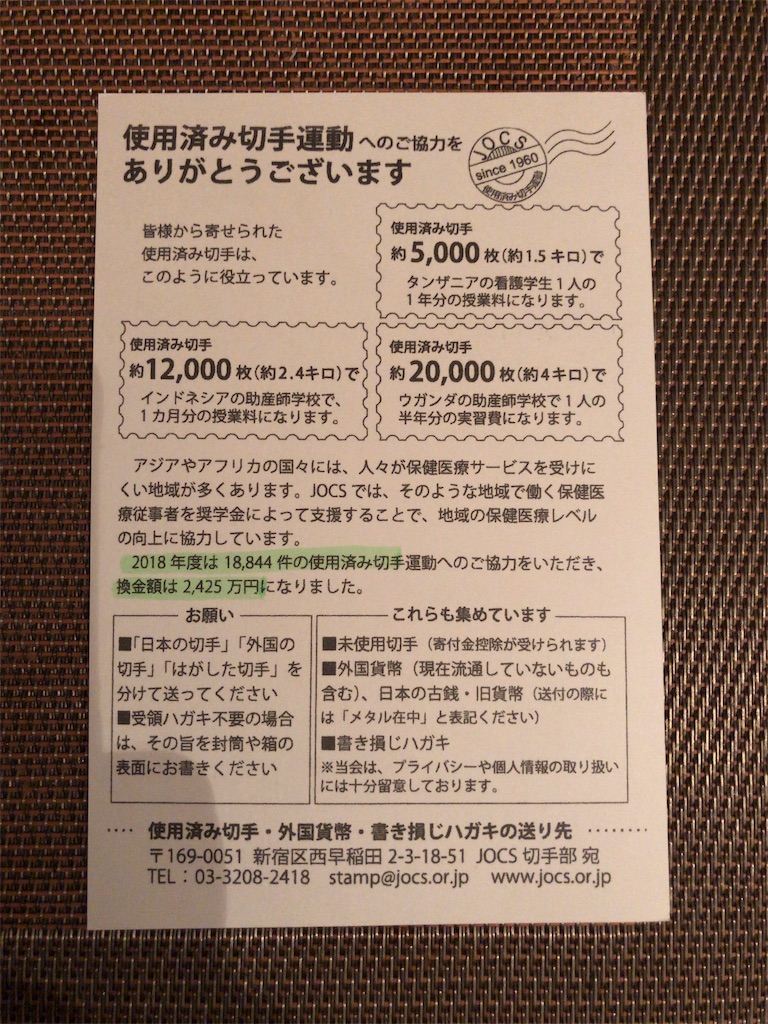 使用済み切手運動 へのご協力を
ありがとうございます
JOCS
since 1960
使用済み切手運動
皆様から寄せられた
使用済み切手は、
このように役立っています。
使用済み切手
約5,000枚(約1.5キロ)で
タンザニアの看護学生1人の
1年分の授業料になります。
使用済み切手
約12,000枚(約2.4キロ)で
インドネシアの助産師学校で、
1カ月分の授業料になります。
使用済み切手
約20,000枚(約4キロ)で
ウガンダの助産師学校で1人の
半年分の実習費になります。
アジアやアフリカの国々には、人々が保健医療サービスを受けに
くい地域が多くあります。JOCSでは、そのような地域で働く保健医
療従事者を奨学金によって支援することで、地域の保健医療レベル
の向上に協力しています。
2018年度は18,844件の使用済み切手運動へのご協力をいただき、
換金額は2,425万円になりました。
お願い
■「日本の切手」「外国の
切手」「はがした切手」を
分けて送ってください
■受領ハガキ不要の場合
は、その旨を封筒や箱の
表面にお書きください
これらも集めています
■未使用切手（寄付金控除が受けられます）
■外国貨幣（現在流通していないものも
含む）、日本の古銭・旧貨幣（送付の際に
は「メタル在中」と表記ください）
■書き損じハガキ
※当会は、プライバシーや個人情報の取り扱い
には十分留意しております。
‥‥ 使用済み切手・外国貨幣・書き損じハガキの送り先 ‥‥‥‥
〒169-0051 新宿区西早稲田 2-3-18-51 JOCS 切手部 宛
TEL：03-3208-2418 stamp@jocs.or.jp www.jocs.or.jp